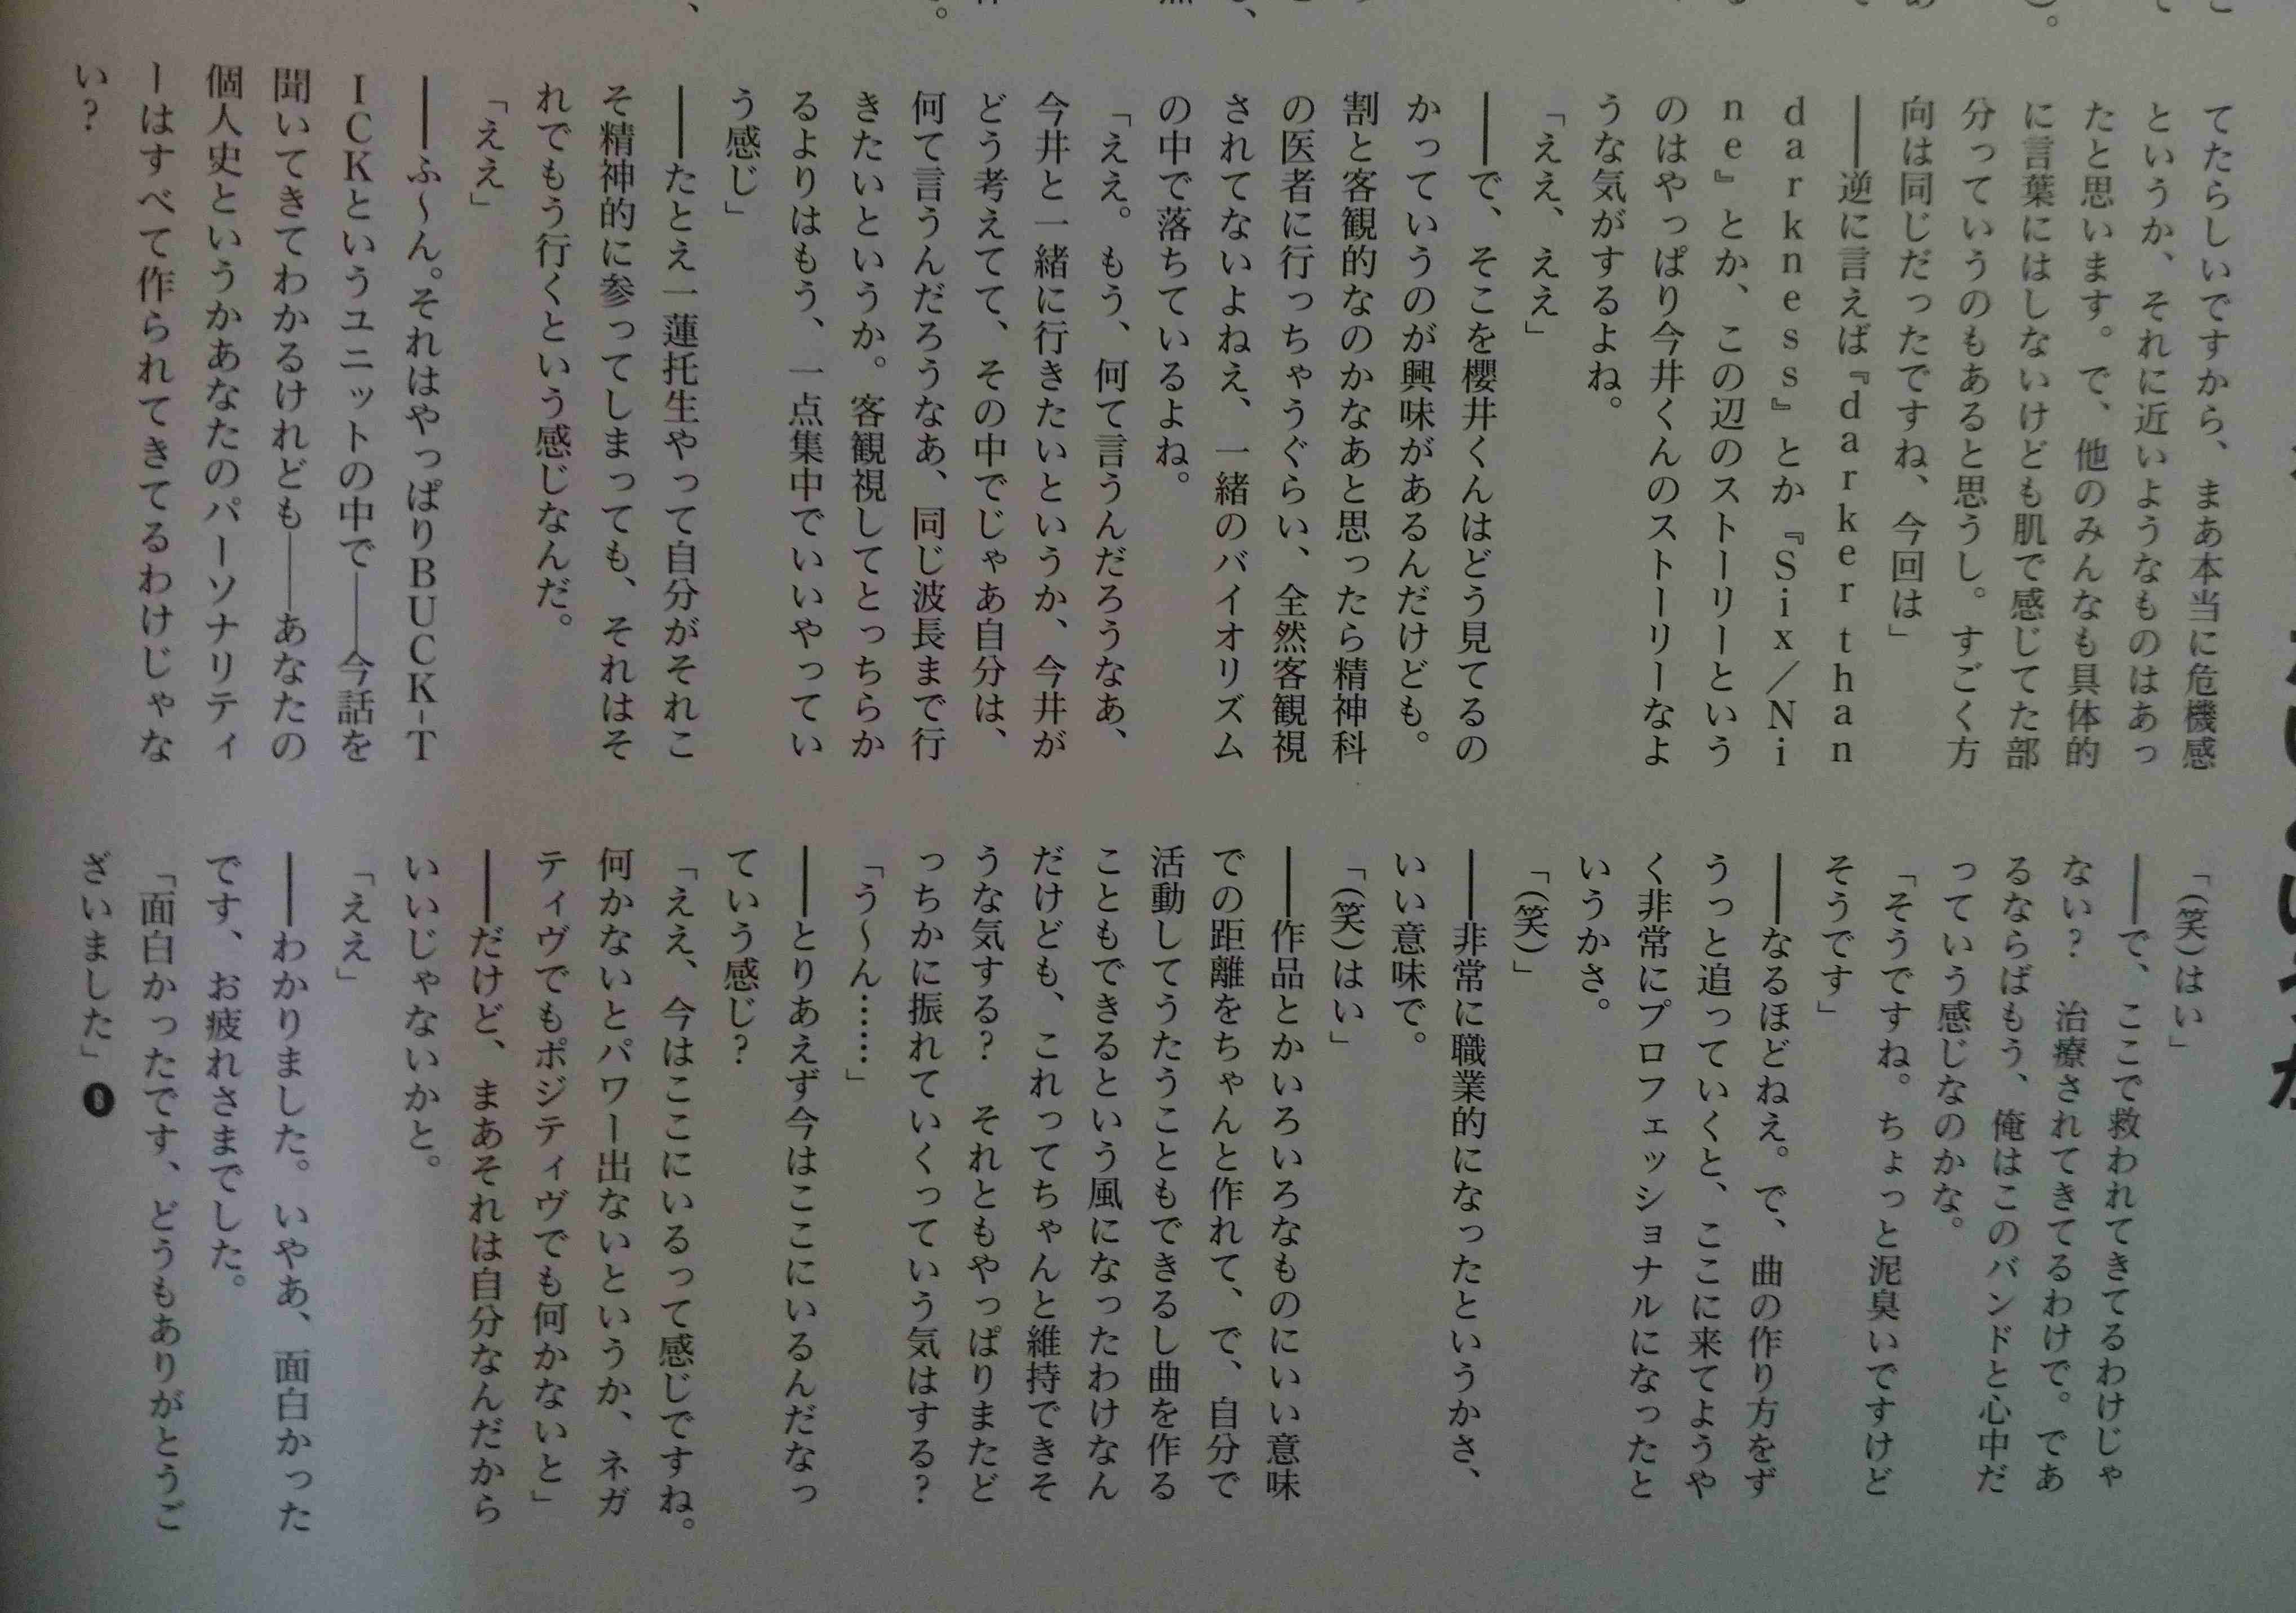 てたらしいですから、まあ本当に危機感
というか、それに近いようなものはあっ
たと思います。で、他のみんなも具体的
に言葉にはしないけども肌で感じてた部
分っていうのもあると思うし。すごく方
向は同じだったですね、今回は」
――逆に言えば『darker than
darkness』とか『Six／Ni
ne』とか、この辺のストーリーという
のはやっぱり今井くんのストーリーなよ
うな気がするよね。
「ええ、ええ」
――で、そこを櫻井くんはどう見てるの
かっていうのが興味があるんだけども。
割と客観的なのかなあと思ったら精神科
の医者に行っちゃうぐらい、全然客観視
されてないよねえ、一緒のバイオリズム
の中で落ちているよね。
「ええ。もう、何て言うんだろうなあ、
今井と一緒に行きたいというか、今井が
どう考えてて、その中でじゃあ自分は、
何て言うんだろうなあ、同じ波長まで行
きたいというか。客観視してとっちらか
るよりはもう、一点集中でいいやってい
う感じ」
――たとえ一蓮托生やって自分がそれこ
そ精神的に参ってしまっても、それはそ
れでもう行くという感じなんだ。
「ええ」
――ふ〜ん。それはやっぱりBUCK-T
ICKというユニットの中で――今話を
聞いてきてわかるけれども――あなたの
個人史というかあなたのパーソナリティ
ーはすべて作られてきてるわけじゃな
い？
「(笑)はい」
――で、ここで救われてきてるわけじゃ
ない？　治療されてきてるわけで。であ
るならばもう、俺はこのバンドと心中だ
っていう感じなのかな。
「そうですね。ちょっと泥臭いですけど
そうです」
――なるほどねえ。で、曲の作り方をず
うっと追っていくと、ここに来てようや
く非常にプロフェッショナルになったと
いうかさ。
「(笑)」
――非常に職業的になったというかさ、
いい意味で。
「(笑)はい」
――作品とかいろいろなものにいい意味
での距離をちゃんと作れて、で、自分で
活動してうたうこともできるし曲を作る
こともできるという風になったわけなん
だけども、これってちゃんと維持できそ
うな気する？　それともやっぱりまたど
っちかに振れていくっていう気はする？
「う〜ん……」
――とりあえず今はここにいるんだなっ
ていう感じ？
「ええ、今はここにいるって感じですね。
何かないとパワー出ないというか、ネガ
ティヴでもポジティヴでも何かないと」
――だけど、まあそれは自分なんだから
いいじゃないかと。
「ええ」
――わかりました。いやあ、面白かった
です、お疲れさまでした。
「面白かったです、どうもありがとうご
ざいました」